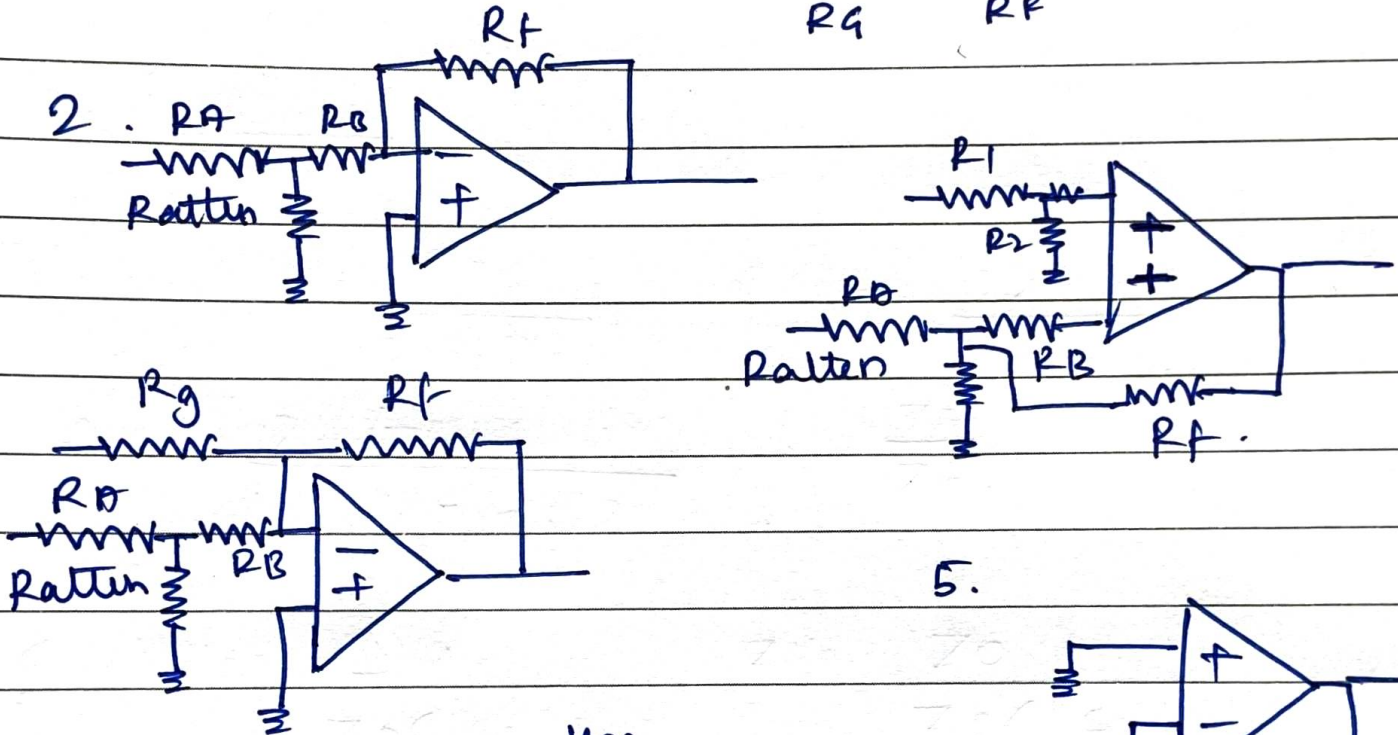 RG RF
Rf
2. RA RB
- 
Rattin +
R1
R2 +
+
RA
Ratten RB
Rf.
Rg Rf
RA
RB -
Rattin +
5.
+
-